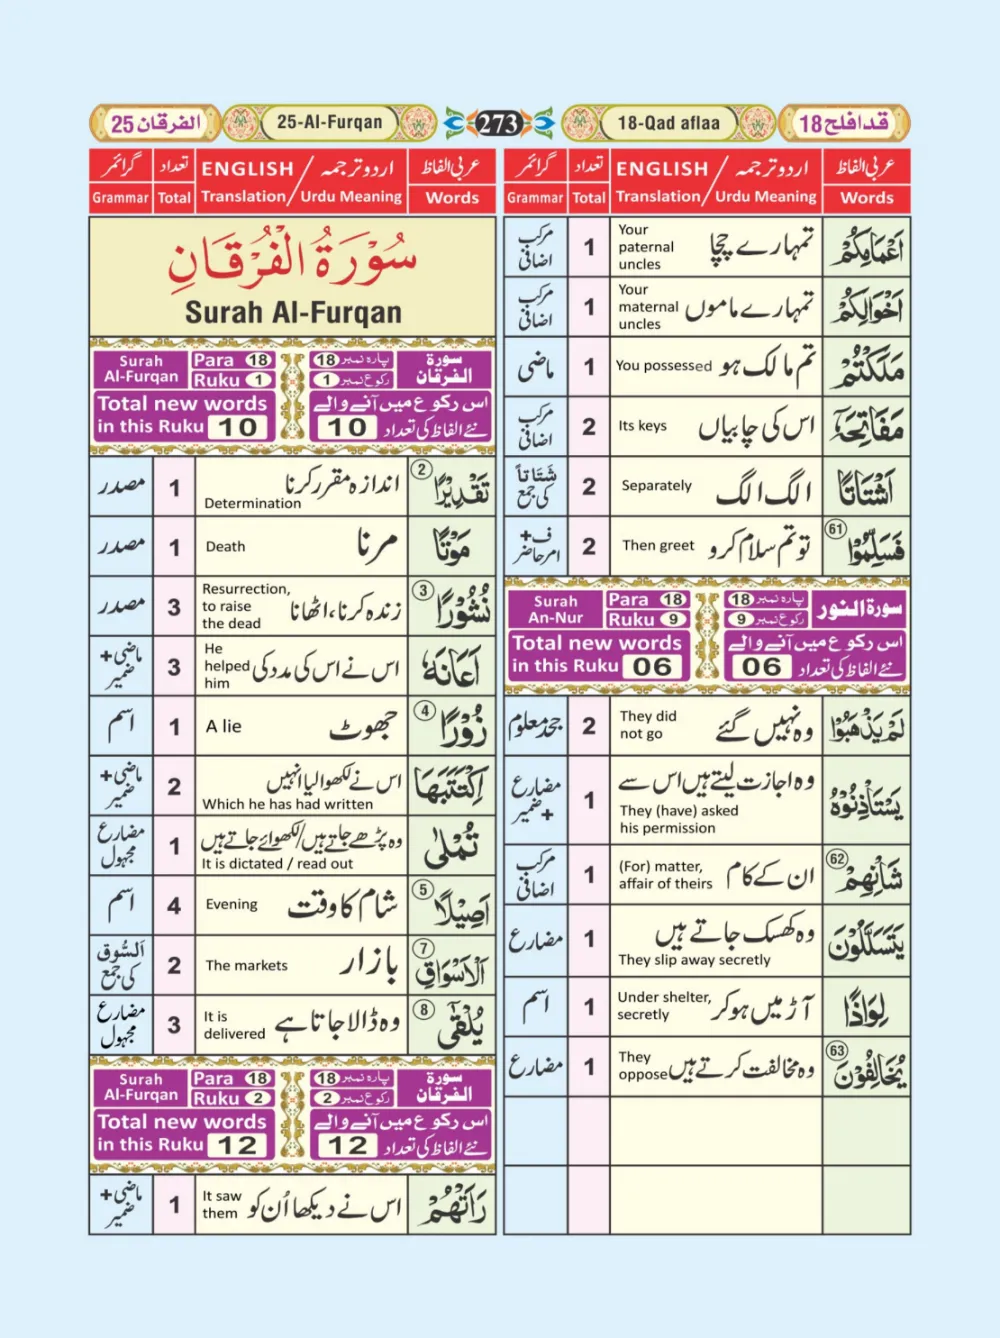 قد افلح 18
18-Qad aflaa
273
25-Al-Furqan
الفرقان 25
عربی الفاظ اردو ترجمہ / ENGLISH تعداد گرائمر
Words Urdu Meaning / Translation Total Grammar
اَعْمَامِكُمْ تمہارے چچا 1 مرکب
Your
paternal
uncles
اضافی
اَخْوَالِكُمْ تمہارے ماموں 1 مرکب
Your
maternal
uncles
اضافی
مَلَكْتُمْ تم مالک ہو You possessed 1 ماضی
مَفَاتِحَهٗۤ اس کی چابیاں Its keys 2 مرکب
اضافی
اَشْتَاتًا الگ الگ Separately 2 شَتَاتاً
کی جمع
61 فَسَلِّمُوْا تو تم سلام کرو Then greet 2 ف+
امر حاضر
سورۃ النور
پارہ نمبر 18
رکوع نمبر 9
اس رکوع میں آنے والے
نئے الفاظ کی تعداد 06
Surah
An-Nur
Para 18
Ruku 9
Total new words
in this Ruku 06
لَمْ يَذْهَبُوْا وہ نہیں گئے 2 جحد معلوم
They did
not go
يَسْتَاْذِنُوْهُ وہ اجازت لیتے ہیں اس سے 1 مضارع
+ضمیر
They (have) asked
his permission
62 شَاْنِهِمْ ان کے کام 1 مرکب
اضافی
(For) matter,
affair of theirs
يَتَسَلَّلُوْنَ وہ کھسک جاتے ہیں 1 مضارع
They slip away secretly
لِوَاذًا آڑ میں ہو کر 1 اسم
Under shelter,
secretly
63 يُخَالِفُوْنَ وہ مخالفت کرتے ہیں 1 مضارع
They
oppose
عربی الفاظ اردو ترجمہ / ENGLISH تعداد گرائمر
Words Urdu Meaning / Translation Total Grammar
سُوْرَةُ الْفُرْقَانِ
Surah Al-Furqan
سورۃ
الفرقان
پارہ نمبر 18
رکوع نمبر 1
اس رکوع میں آنے والے
نئے الفاظ کی تعداد 10
Surah
Al-Furqan
Para 18
Ruku 1
Total new words
in this Ruku 10
2 تَقْدِيْرًا اندازہ مقرر کرنا 1 مصدر
Determination
مَوْتًا مرنا Death 1 مصدر
3 نُشُوْرًا زندہ کرنا، اٹھانا 3 مصدر
Resurrection,
to raise
the dead
اَعَانَهٗ اس نے اس کی مدد کی 3 ماضی+
ضمیر
He
helped
him
4 زُوْرًا جھوٹ A lie 1 اسم
اِكْتَتَبَهَا اس نے لکھوا لیا انہیں 2 ماضی+
ضمیر
Which he has had written
تُمْلٰى وہ پڑھے جاتے ہیں/لکھوائے جاتے ہیں 1 مضارع
مجہول
It is dictated / read out
5 اَصِيْلًا شام کا وقت Evening 4 اسم
7 اَلْاَسْوَاقِ بازار The markets 2 اَلسُّوْق
کی جمع
8 يُلْقٰٓى وہ ڈالا جاتا ہے 3 مضارع
مجہول
It is
delivered
سورۃ
الفرقان
پارہ نمبر 18
رکوع نمبر 2
اس رکوع میں آنے والے
نئے الفاظ کی تعداد 12
Surah
Al-Furqan
Para 18
Ruku 2
Total new words
in this Ruku 12
رَاَتْهُمْ اس نے دیکھا اُن کو 1 ماضی+
ضمیر
It saw
them